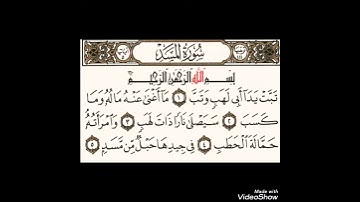 سُورَةُ المَسَد
بِسْمِ اللَّهِ الرَّحْمَٰنِ الرَّحِيمِ
تَبَّتْ يَدَا أَبِي لَهَبٍ وَتَبَّ ١ مَا أَغْنَىٰ عَنْهُ مَالُهُ وَمَا
كَسَبَ ٢ سَيَصْلَىٰ نَارًا ذَاتَ لَهَبٍ ٣ وَامْرَأَتُهُ
حَمَّالَةَ الْحَطَبِ ٤ فِي جِيدِهَا حَبْلٌ مِّن مَّسَدٍ ٥
Made with
VideoShow